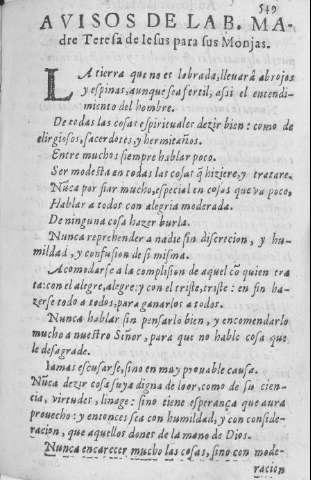 549
AVISOS DE LA B. MA-
dre Teresa de Iesus para sus Monjas.
LA tierra que no es labrada, lleuarà abrojos
y espinas, aunque sea fertil, assi el entendi-
miento del hombre.
De todas las cosas espirituales dezir bien: como de
elirgiosos, sacerdotes, y hermitaños.
Entre muchos siempre hablar poco.
Ser modesta en todas las cosas q̃ hiziere, y tratare.
Nũca porfiar mucho, especial en cosas que va poco,
Hablar a todos con alegria moderada.
De ninguna cosa hazer burla.
Nunca reprehender a nadie sin discrecion, y hu-
mildad, y confusion de si misma.
Acomodarse a la complision de aquel cõ quien tra
ta: con el alegre, alegre: y con el triste, triste: en fin ha-
zerse todo a todos, para ganarlos a todos.
Nunca hablar sin pensarlo bien, y encomendarlo
mucho a nuestro Señor, para que no hable cosa que
le desagrade.
Iamas escusarse, sino en muy prouable causa.
Nũca dezir cosa suya digna de loor, como de su cien-
cia, virtudes, linage: sino tiene esperança que aura
prouecho: y entonces sea con humildad, y con conside-
racion, que aquellos dones de la mano de Dios.
Nunca encarecer mucho las cosas, sino con mode-
racion